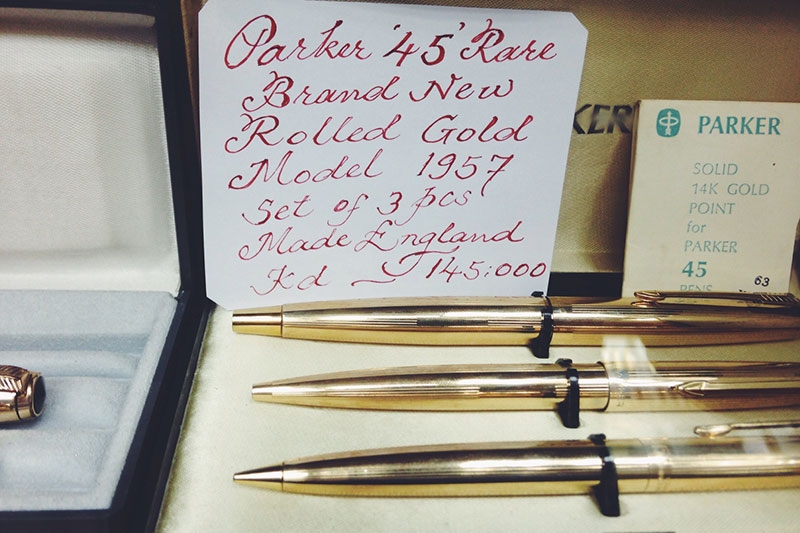 Parker '45' Rare
Brand New
Rolled Gold
Model 1957
Set of 3 pcs
Made England
Kd 145:000
KER
PARKER
SOLID
14K GOLD
POINT
for
PARKER
45
PENS
63